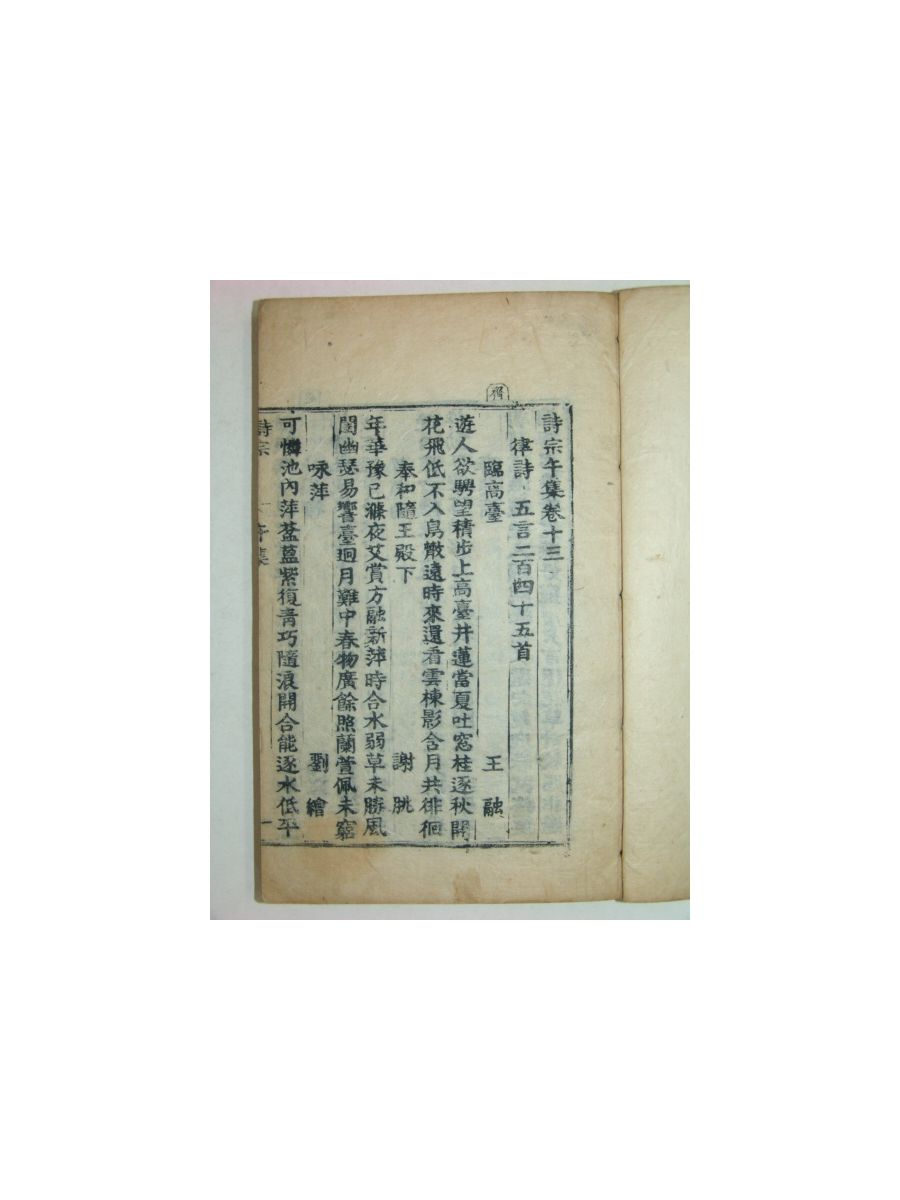 詩宗午集卷十三
律詩 五言二百四十五首
齊
臨高臺 王融
遊人欲騁望積步上高臺井蓮當夏吐窓桂逐秋開
花飛低不入鳥散遠時來還看雲棟影含月共徘徊
奉和隨王殿下 謝朓
年華豫已滌夜艾賞方融新萍時合水弱草未勝風
閨幽瑟易響臺迥月難中春物廣餘照蘭萱佩未窮
咏萍 劉繪
可憐池內萍葐蒀紫復靑巧隨浪開合能逐水低平
詩宗 午集 一